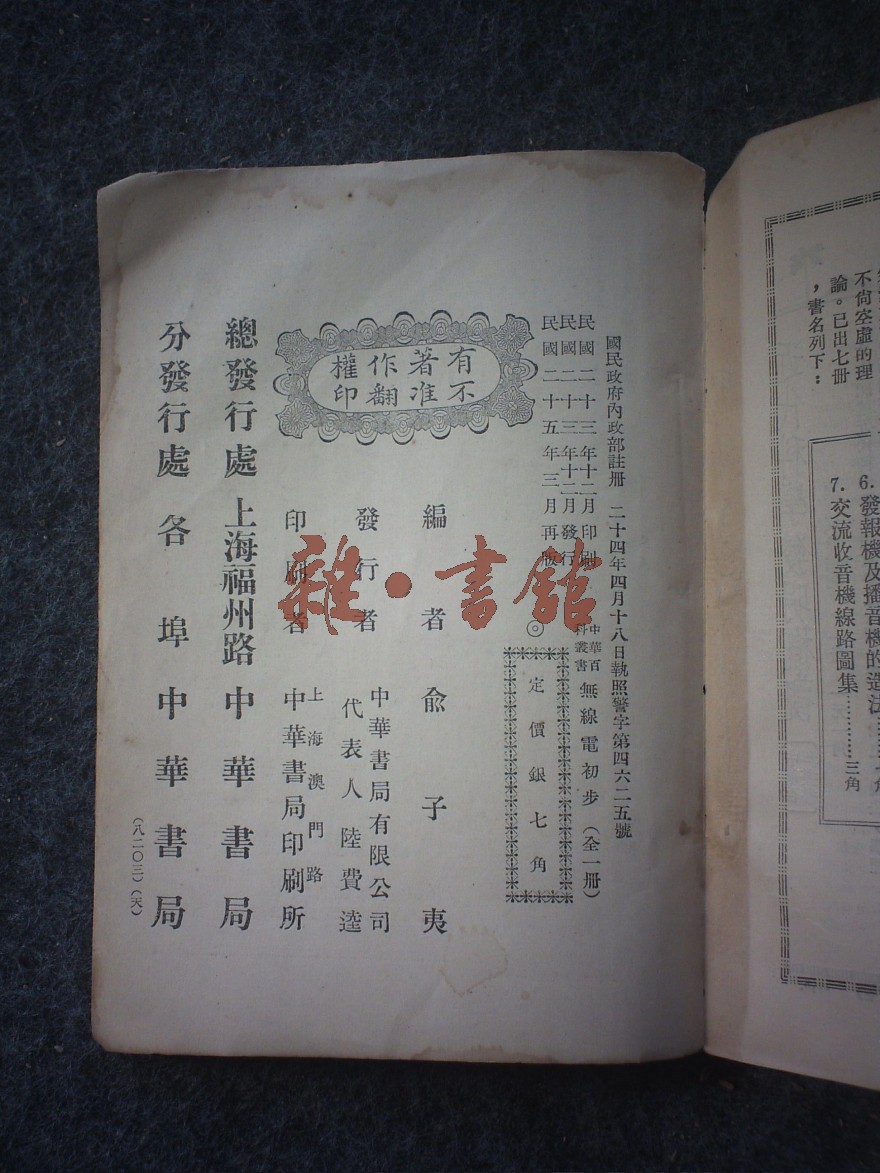 不尚空虛的理
論。已出七册
，書名列下：
6. 發報機及播音機的造法
7. 交流收音機線路圖集…………三角
國民政府內政部註册 二十四年四月十八日執照警字第四六二五號
民國二十三年十二月印刷
民國二十三年十二月發行
民國二十五年三月再版
中華百科叢書 無線電初步（全一册）
◎
定價銀七角
有著作權
不准翻印
編者 兪子夷
發行者 中華書局有限公司
代表人 陸費逵
印刷者 上海澳門路
中華書局印刷所
總發行處 上海福州路 中華書局
分發行處 各埠中華書局
（八二〇三）（天）
雜·書館